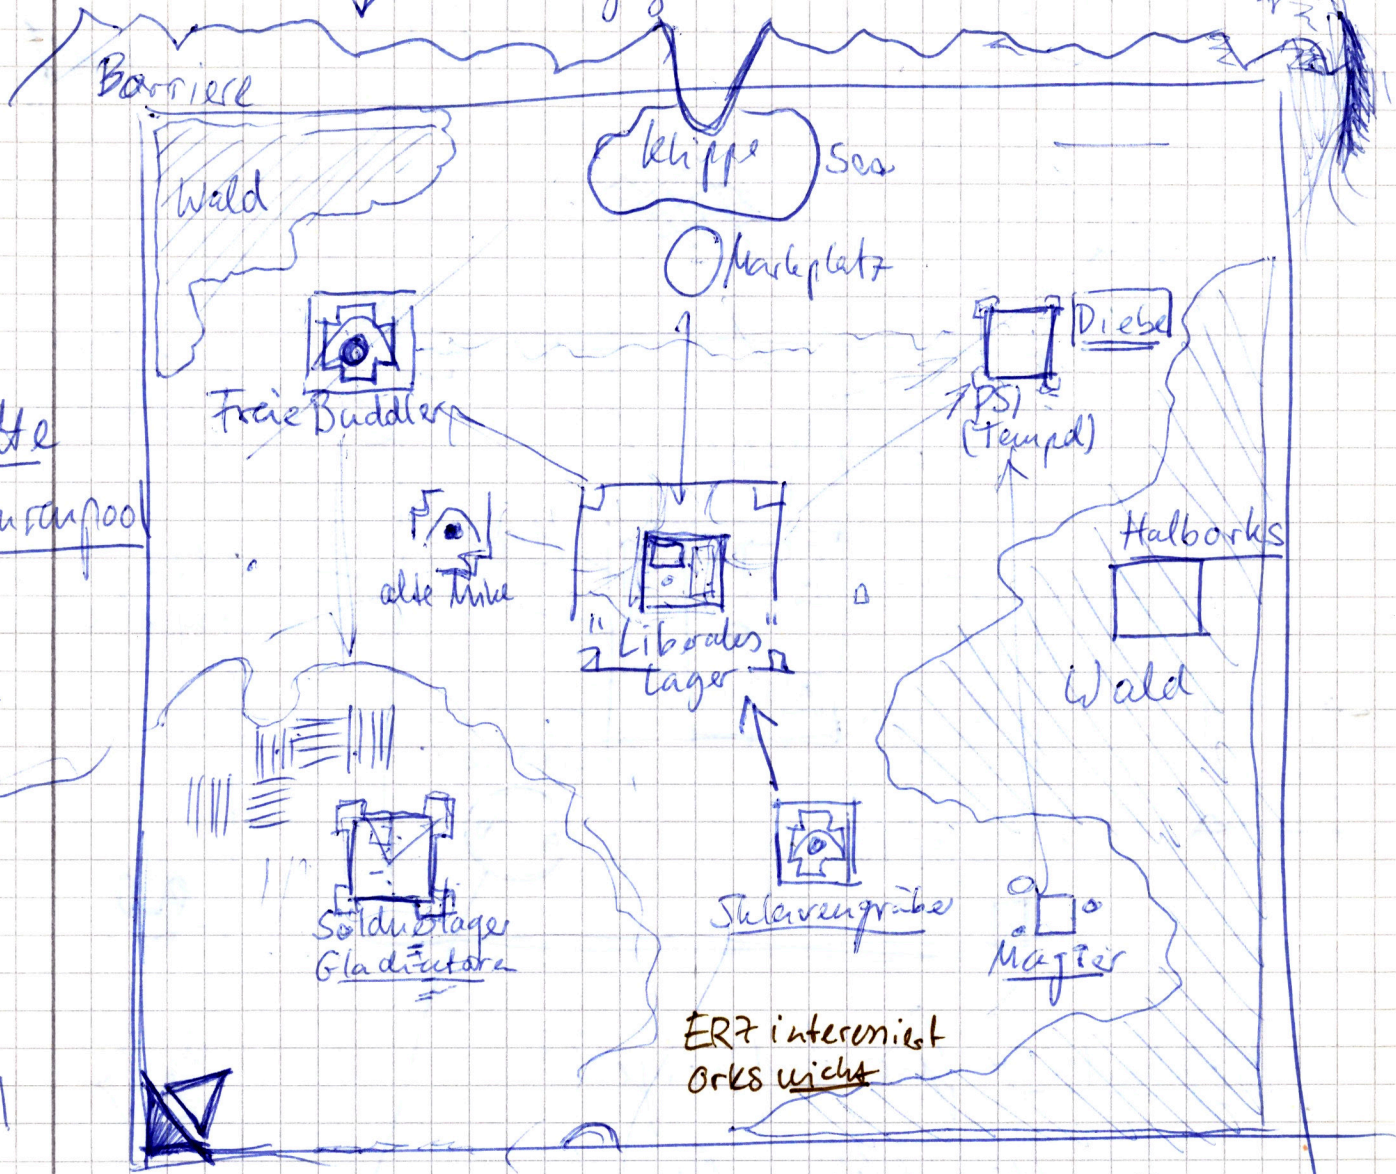 Barriere
Wald
Klippe
See
Markplatz
Diebe
Freie Buddler
PSI
(Tempel)
Halborks
alte Mine
"Liberales"
Lager
Wald
Söldnerlager
Gladiatoren
Sklavengräber
Magier
ERZ interessiert
Orks nicht